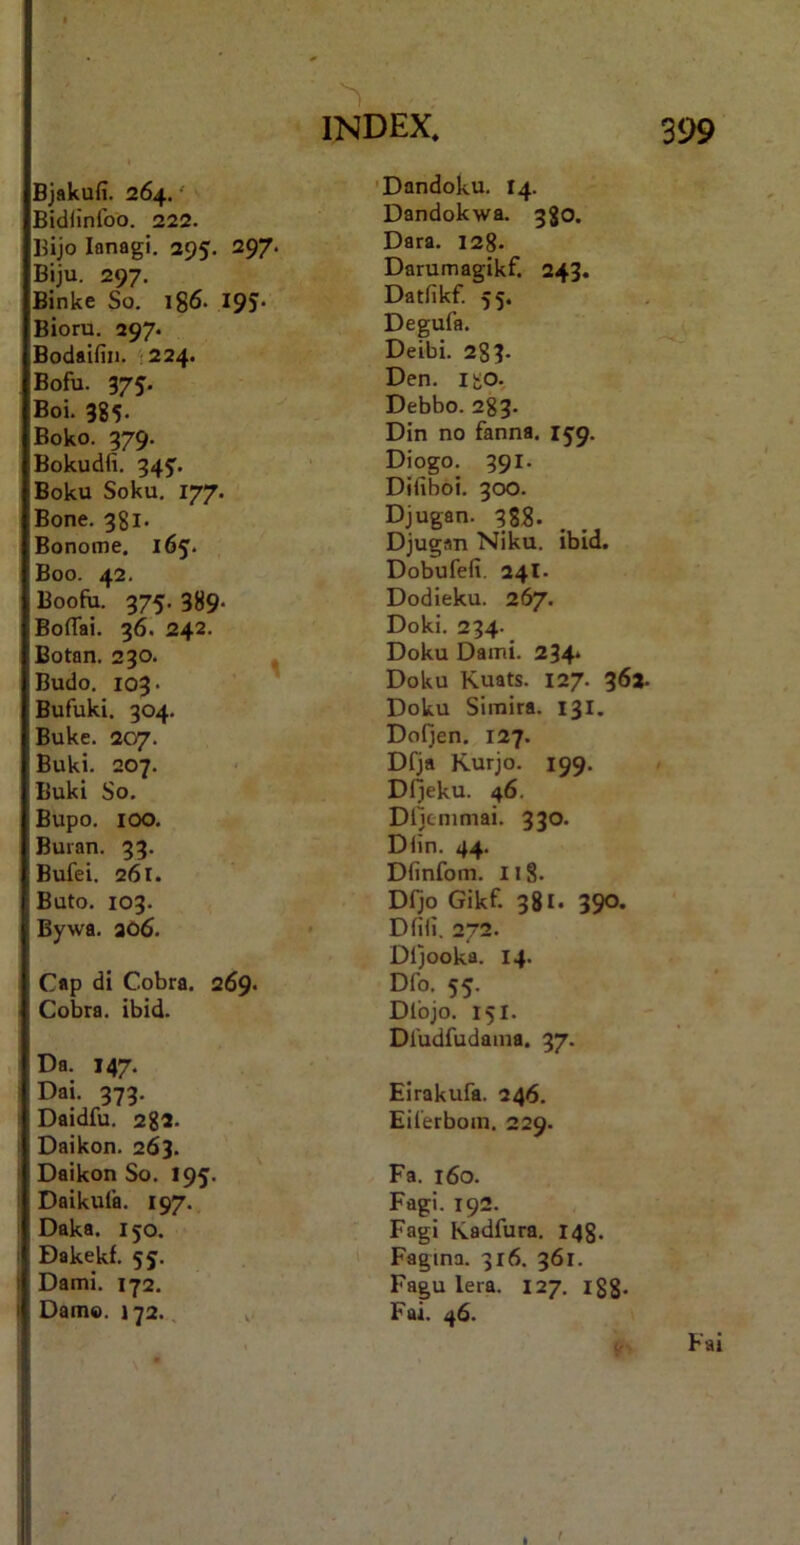 INDEX. 399
Bjakuſi. 264.
Bidſinſoo. 222.
Bijo Ianagi. 295. 297.
Biju. 297.
Binke So. 186. 195.
Bioru. 297.
Bodaiſin. 224.
Bofu. 375.
Boi. 385.
Boko. 379.
Bokudſi. 345.
Boku Soku. 177.
Bone. 381.
Bonome. 165.
Boo. 42.
Boofu. 375. 389.
Boſſai. 36. 242.
Botan. 230.
Budo. 103.
Bufuki. 304.
Buke. 207.
Buki. 207.
Buki So.
Bupo. 100.
Buran. 33.
Buſei. 261.
Buto. 103.
Bywa. 206.
Cap di Cobra. 269.
Cobra. ibid.
Da. 147.
Dai. 373.
Daidſu. 282.
Daikon. 263.
Daikon So. 195.
Daikuſa. 197.
Daka. 150.
Dakekf. 55.
Dami. 172.
Damo. 172.
Dandoku. 14.
Dandokwa. 380.
Dara. 128.
Darumagikf. 243.
Datſikf. 55.
Deguſa.
Deibi. 283.
Den. 180.
Debbo. 283.
Din no ſanna. 159.
Diogo. 391.
Diſiboi. 300.
Djugan. 388.
Djugan Niku. ibid.
Dobuſeſi. 241.
Dodieku. 267.
Doki. 234.
Doku Dami. 234.
Doku Kuats. 127. 362.
Doku Simira. 131.
Doſjen. 127.
Dſja Kurjo. 199.
Dſjeku. 46.
Dſjemmai. 330.
Dſin. 44.
Dſinſom. 118.
Dſjo Gikf. 381. 390.
Dſiſi. 272.
Dſjooka. 14.
Dſo. 55.
Dſojo. 151.
Dſudſudama. 37.
Eirakuſa. 246.
Eiſerbom. 229.
Fa. 160.
Fagi. 192.
Fagi Kadſura. 148.
Fagina. 316. 361.
Fagu lera. 127. 188.
Fai. 46.
Fai